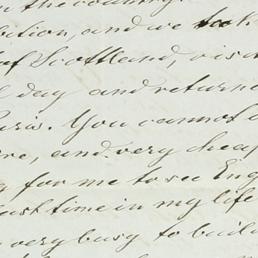 the country.
and we took
of Scotland, visit
day and returne
You cannot
and very cheap
for me to see Eng
last time in my life
very busy to build